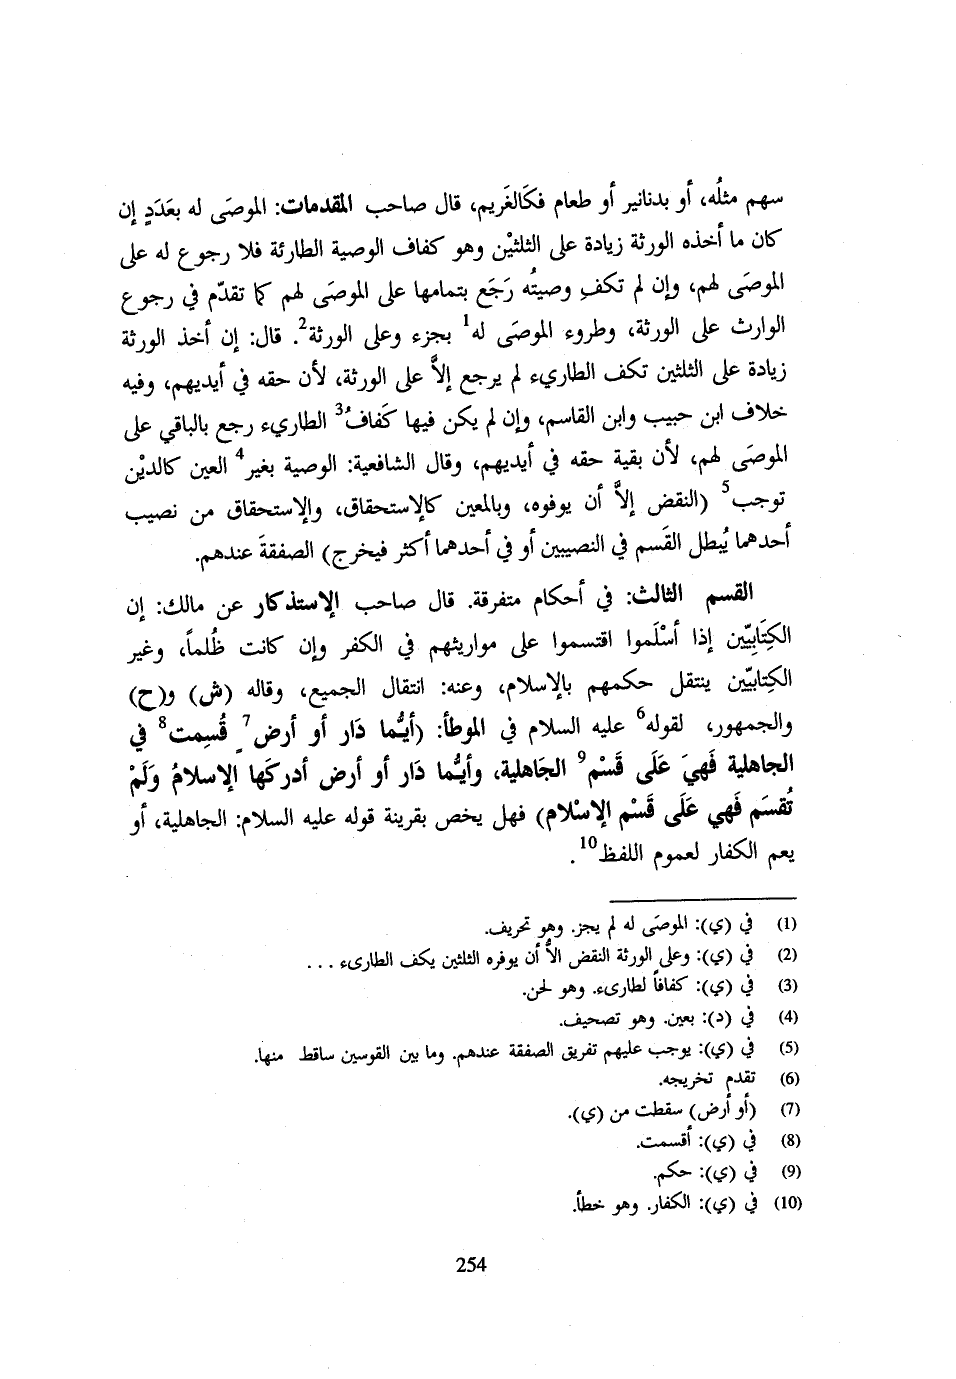 سهم مثلُه، أو بدنانير أو طعام فكَالغَريم، قال صاحب المقدمات: الموصَى له بعَدَدٍ إن
كان ما أخذه الورثة زيادة على الثلثيْن وهو كفاف الوصية الطارئة فلا رجوع له على
الموصَى لهم، وإن لم تكفِ وصيتُه رَجَع بتمامها على الموصَى لهم كما تقدّم في رجوع
الوارث على الورثة، وطروء الموصَى له1 بجزء وعلى الورثة2. قال: إن أخذ الورثة
زيادة على الثلثين تكف الطاريء لم يرجع إلاَّ على الورثة، لأن حقه في أيديهم، وفيه
خلاف ابن حبيب وابن القاسم، وإن لم يكن فيها كَفافُ3 الطاريء رجع بالباقي على
الموصَى لهم، لأن بقية حقه في أيديهم، وقال الشافعية: الوصية بغير4 العين كالديْن
توجب5 (النقض إلاَّ أن يوفوه، وبالمعين كالإستحقاق، والإستحقاق من نصيب
أحدهما يُبطل القَسم في النصيبين أو في أحدهما أكثر فيخرج) الصفقةَ عندهم.
القسم الثالث: في أحكام متفرقة. قال صاحب الإستذكار عن مالك: إن
الكِتَابِيّين إذا أسْلَموا اقتسموا على مواريثهم في الكفر وإن كانت ظُلماً، وغير
الكِتابيّين ينتقل حكمهم بالإسلام، وعنه: انتقال الجميع، وقاله (ش) و(ح)
والجمهور، لقوله6 عليه السلام في الموطأ: (أيـُّما دَار أو أرض7 قُسِمت8 في
الجاهلية فَهيَ عَلَى قَسْم9 الجَاهلية، وأيـُّما دَار أو أرض أدركَها الإسلامُ وَلَمْ
تُقسَم فَهي عَلَى قَسْم الإسْلام) فهل يخص بقرينة قوله عليه السلام: الجاهلية، أو
يعم الكفار لعموم اللفظ10.
(1) في (ي): الموصَى له لم يجز. وهو تحريف.
(2) في (ي): وعلى الورثة النقض الاَّ أن يوفره الثلثين يكف الطارىء ...
(3) في (ي): كفافاً لطارىء. وهو لحن.
(4) في (د): بعين. وهو تصحيف.
(5) في (ي): يوجب عليهم تفريق الصفقة عندهم. وما بين القوسين ساقط منها.
(6) تقدم تخريجه.
(7) (أو أرض) سقطت من (ي).
(8) في (ي): أقسمت.
(9) في (ي): حكم.
(10) في (ي): الكفار. وهو خطأ.
254